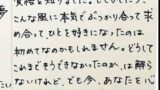 こんな風に本気でぶつかり合って求
め合って、ひとを好きになったのは
初めてなのかもしれません。どうして
これまでそうできなかったのか、は解ら
ないけれど、でも今、あなたを心